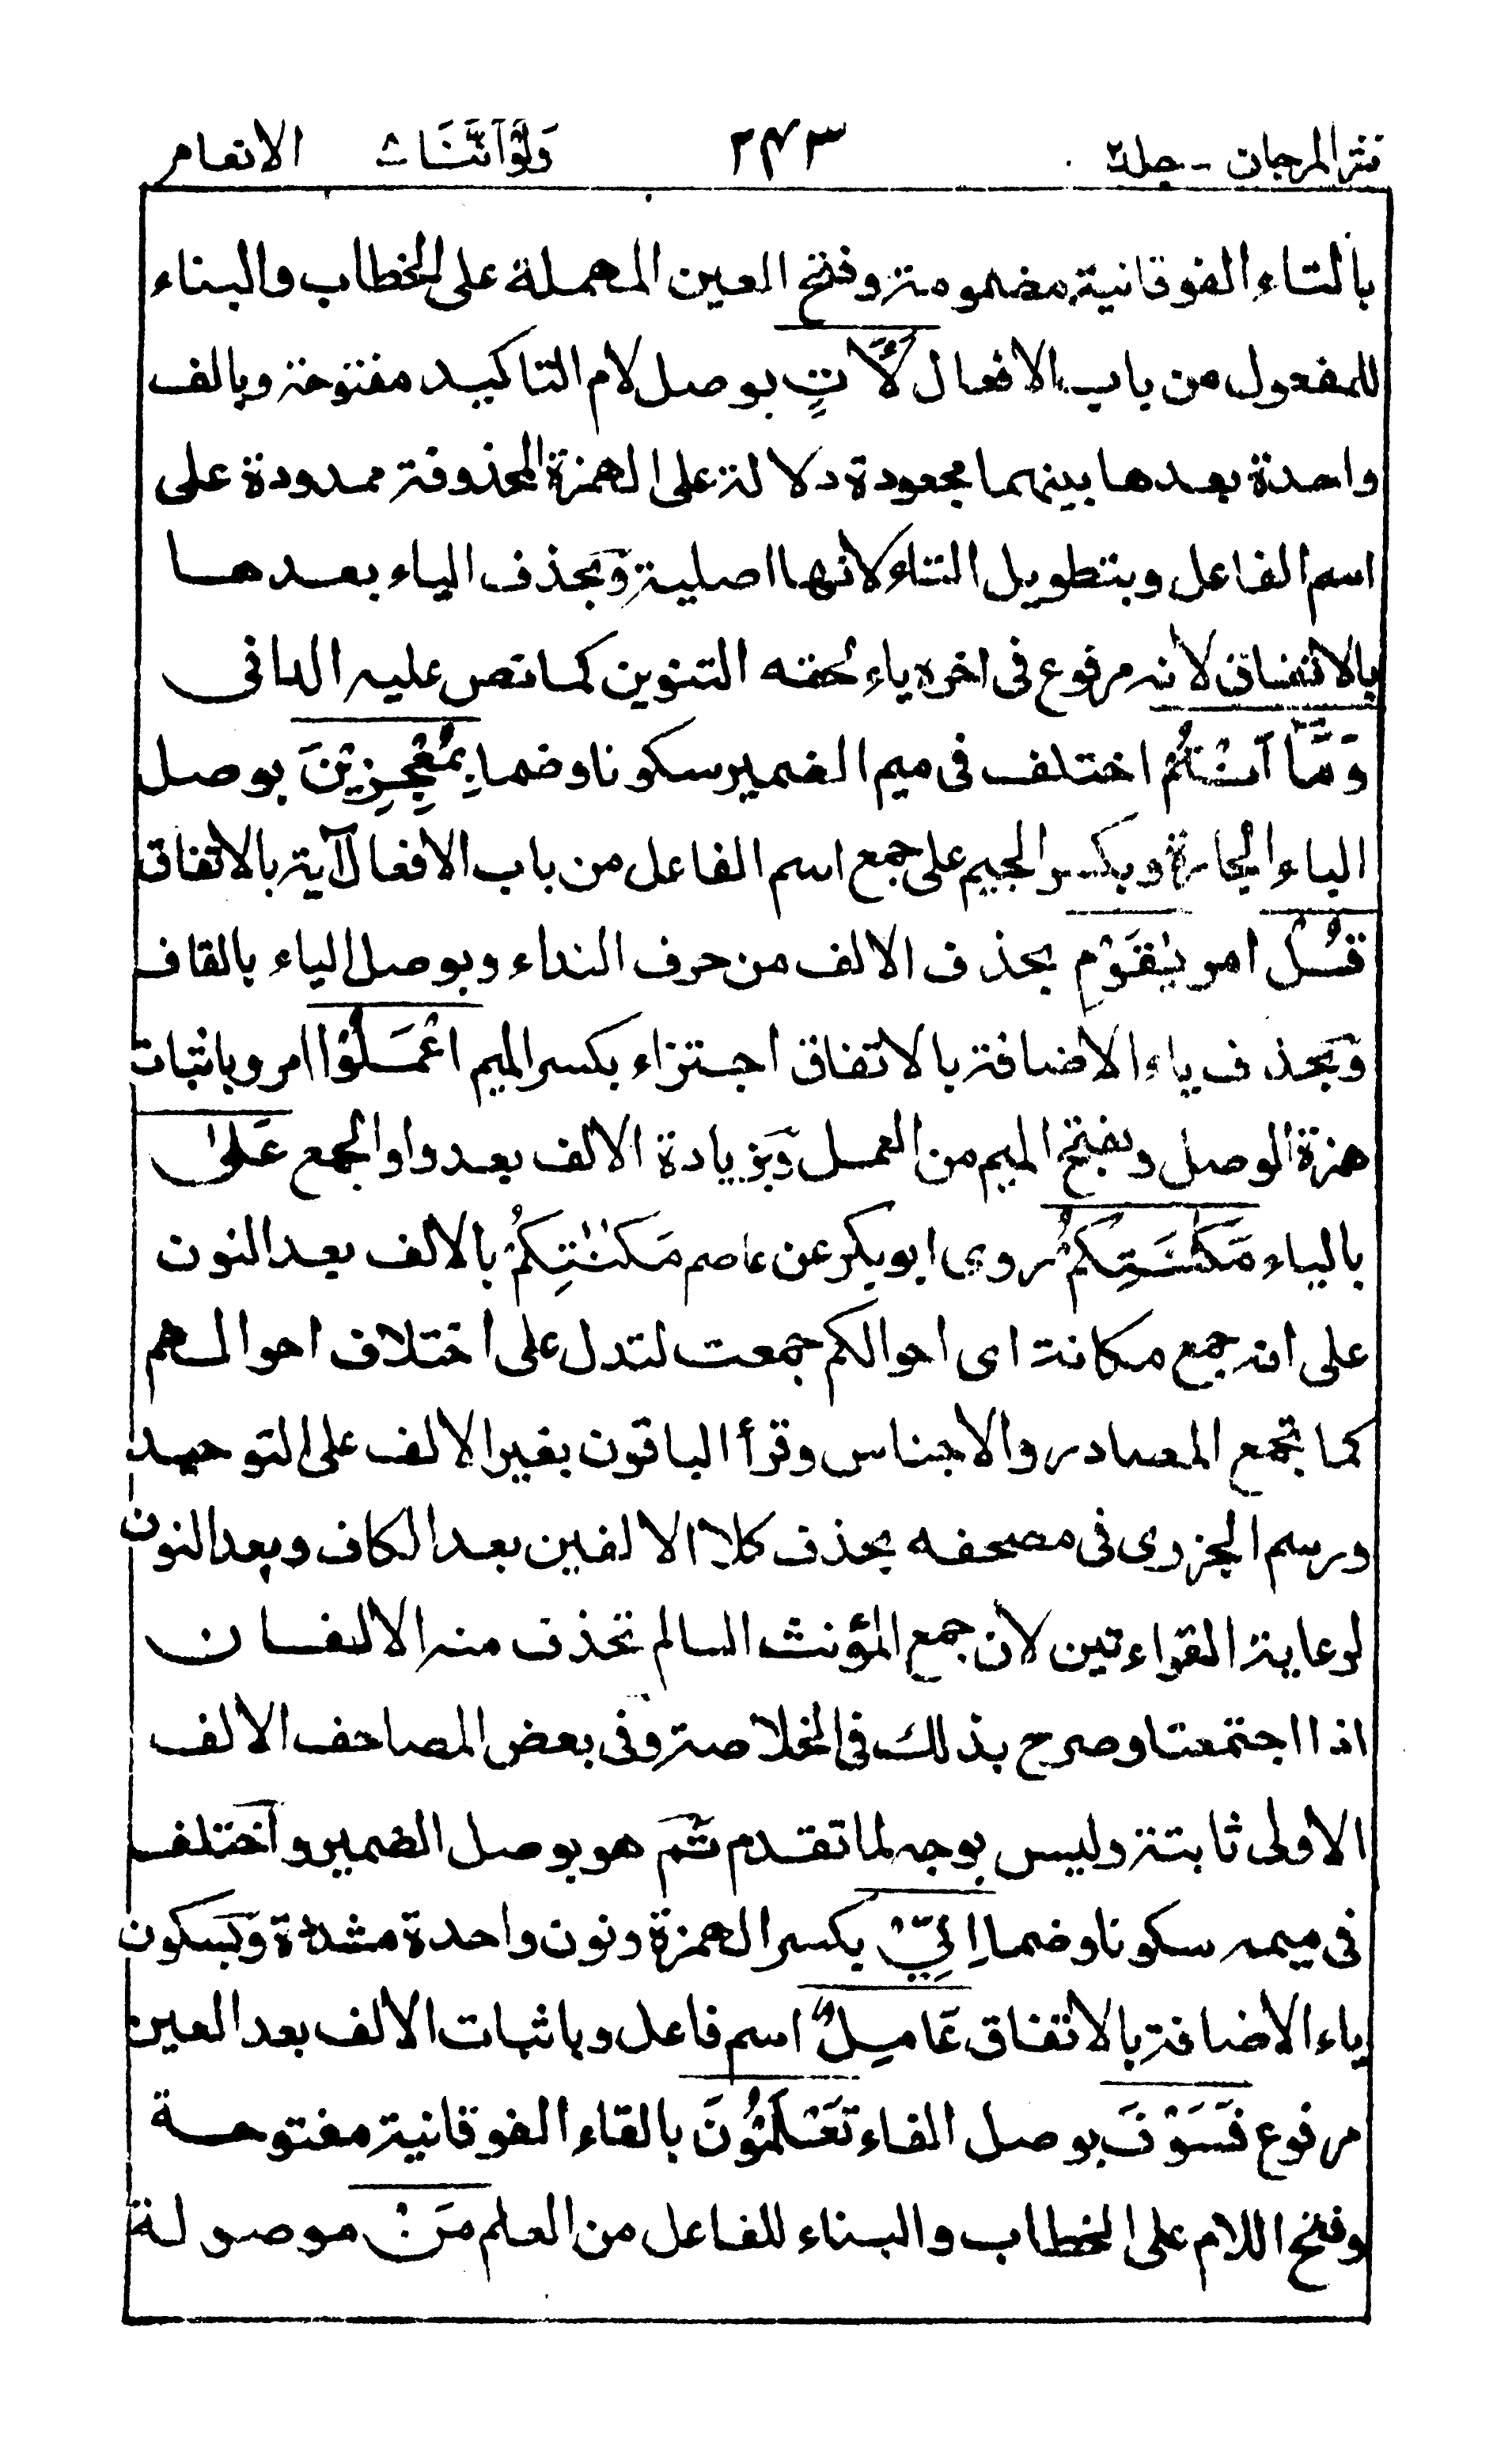 نثر المرجان - جلد٢ ٢٤٣ وَلَوْ اَنَّنَا ٨ الانعام
بالتاء الفوقانية مضمومة وفتح العين المهملة على الخطاب والبناء
للمفعول من باب الافعال لَاٰتٍ بوصل لام التاكيد مفتوحة وبالف
واحدة بعدها بينهما مجعودة دلالة على الهمزة المحذوفة ممدودة على
اسم الفاعل وبتطويل التاء لانها اصلية وَبحذف الياء بعدها
بالاتفاق لانه مرفوع فى اخره ياء لحقه التنوين كما نص عليه الدانى
وَمَّآ اَنْتُمْ اختلف فى ميم الضمير سكونا وضما بِمُعْجِزِيْنَ بوصل
الباء الجارة وبكسر الجيم على جمع اسم الفاعل من باب الافعال آية بالاتفاق
قُلْ امر يٰقَوْمِ بحذف الالف من حرف النداء وبوصل الياء بالقاف
وَبحذف ياء الاضافة بالاتفاق اجتزاء بكسر الميم اعْمَلُوْا امر وباثبات
همزة الوصل وبفتح الميم من العمل وَبزيادة الالف بعد واو الجمع عَلٰى
بالياء مَكَانَتِكُمْ روى ابو بكر عن عاصم مَكٰنٰتِكُمْ بالالف بعد النون
على انه جمع مكانة اى احوالكم جمعت لتدل على اختلاف احوالهم
كما تجمع المصادر والاجناس وقرأ الباقون بغير الالف على التوحيد
ورسم الجزرى فى مصحفه بحذف كلا الالفين بعد الكاف وبعد النون
لرعاية القراءتين لان جمع المؤنث السالم تحذف منه الالفان
اذا اجتمعتا وصرح بذلك فى الخلاصة وفى بعض المصاحف الالف
الاولى ثابتة وليس بوجه لما تقدم ثَم هو بوصل الضمير واختلف
فى ميمه سكونا وضما اِنِّىْ بكسر الهمزة ونون واحدة مشددة وَبسكون
ياء الاضافة بالاتفاق عَامِلٌ اسم فاعل وباثبات الالف بعد العين
مرفوع فَسَوْفَ بوصل الفاء تَعْلَمُوْنَ بالتاء الفوقانية مفتوحة
وفتح اللام على الخطاب والبناء للفاعل من العلم مَنْ موصولة